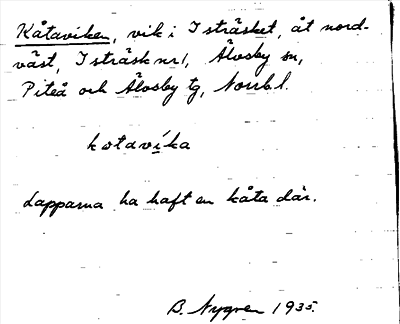 Kåtaviken, vik i Isträsket, åt nord-
väst, Isträsk nr 1, Älvsby sn,
Piteå och Älvsby tg, Norrb l.
kotavika
Lapparna ha haft en kåta där.
B. Nygren 1935.